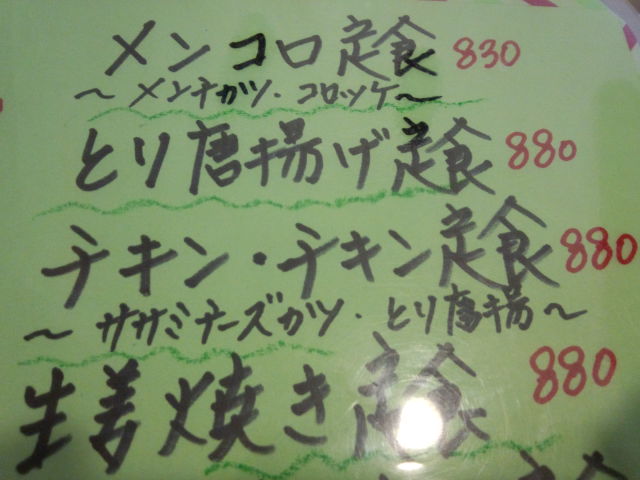 メンコロ定食 830
～メンチカツ・コロッケ～
とり唐揚げ定食 880
チキン・チキン定食 880
～ササミチーズカツ・とり唐揚～
生姜焼き定食 880